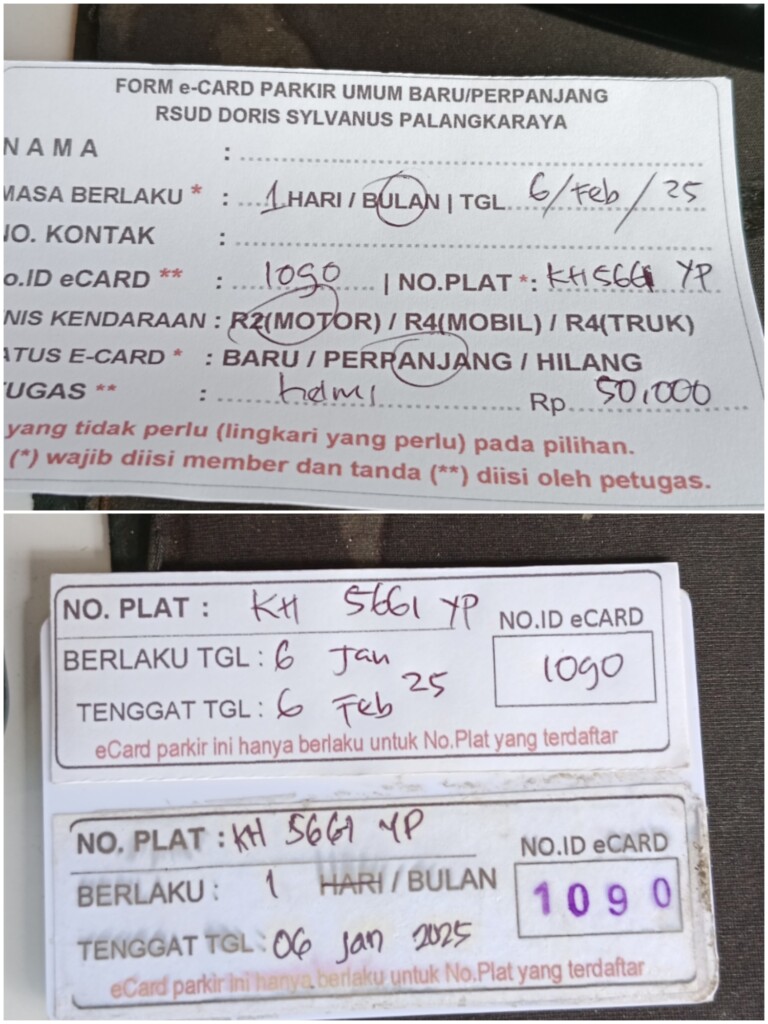 FORM e-CARD PARKIR UMUM BARU/PERPANJANG
RSUD DORIS SYLVANUS PALANGKARAYA
NAMA :
MASA BERLAKU * : 1 HARI / BULAN | TGL 6/Feb/25
NO. KONTAK :
o.ID eCARD ** : 1090 | NO.PLAT *: KH 5661 YP
NIS KENDARAAN : R2(MOTOR) / R4(MOBIL) / R4(TRUK)
ATUS E-CARD * : BARU / PERPANJANG / HILANG
UGAS ** : helmi Rp 50.000
yang tidak perlu (lingkari yang perlu) pada pilihan.
(*) wajib diisi member dan tanda (**) diisi oleh petugas.
NO. PLAT : KH 5661 YP
NO.ID eCARD
BERLAKU TGL : 6 Jan
1090
TENGGAT TGL : 6 Feb 25
eCard parkir ini hanya berlaku untuk No.Plat yang terdaftar
NO. PLAT : KH 5661 YP
NO.ID eCARD
BERLAKU : 1 HARI / BULAN
1090
TENGGAT TGL : 06 Jan 2025
eCard parkir ini hanya berlaku untuk No.Plat yang terdaftar